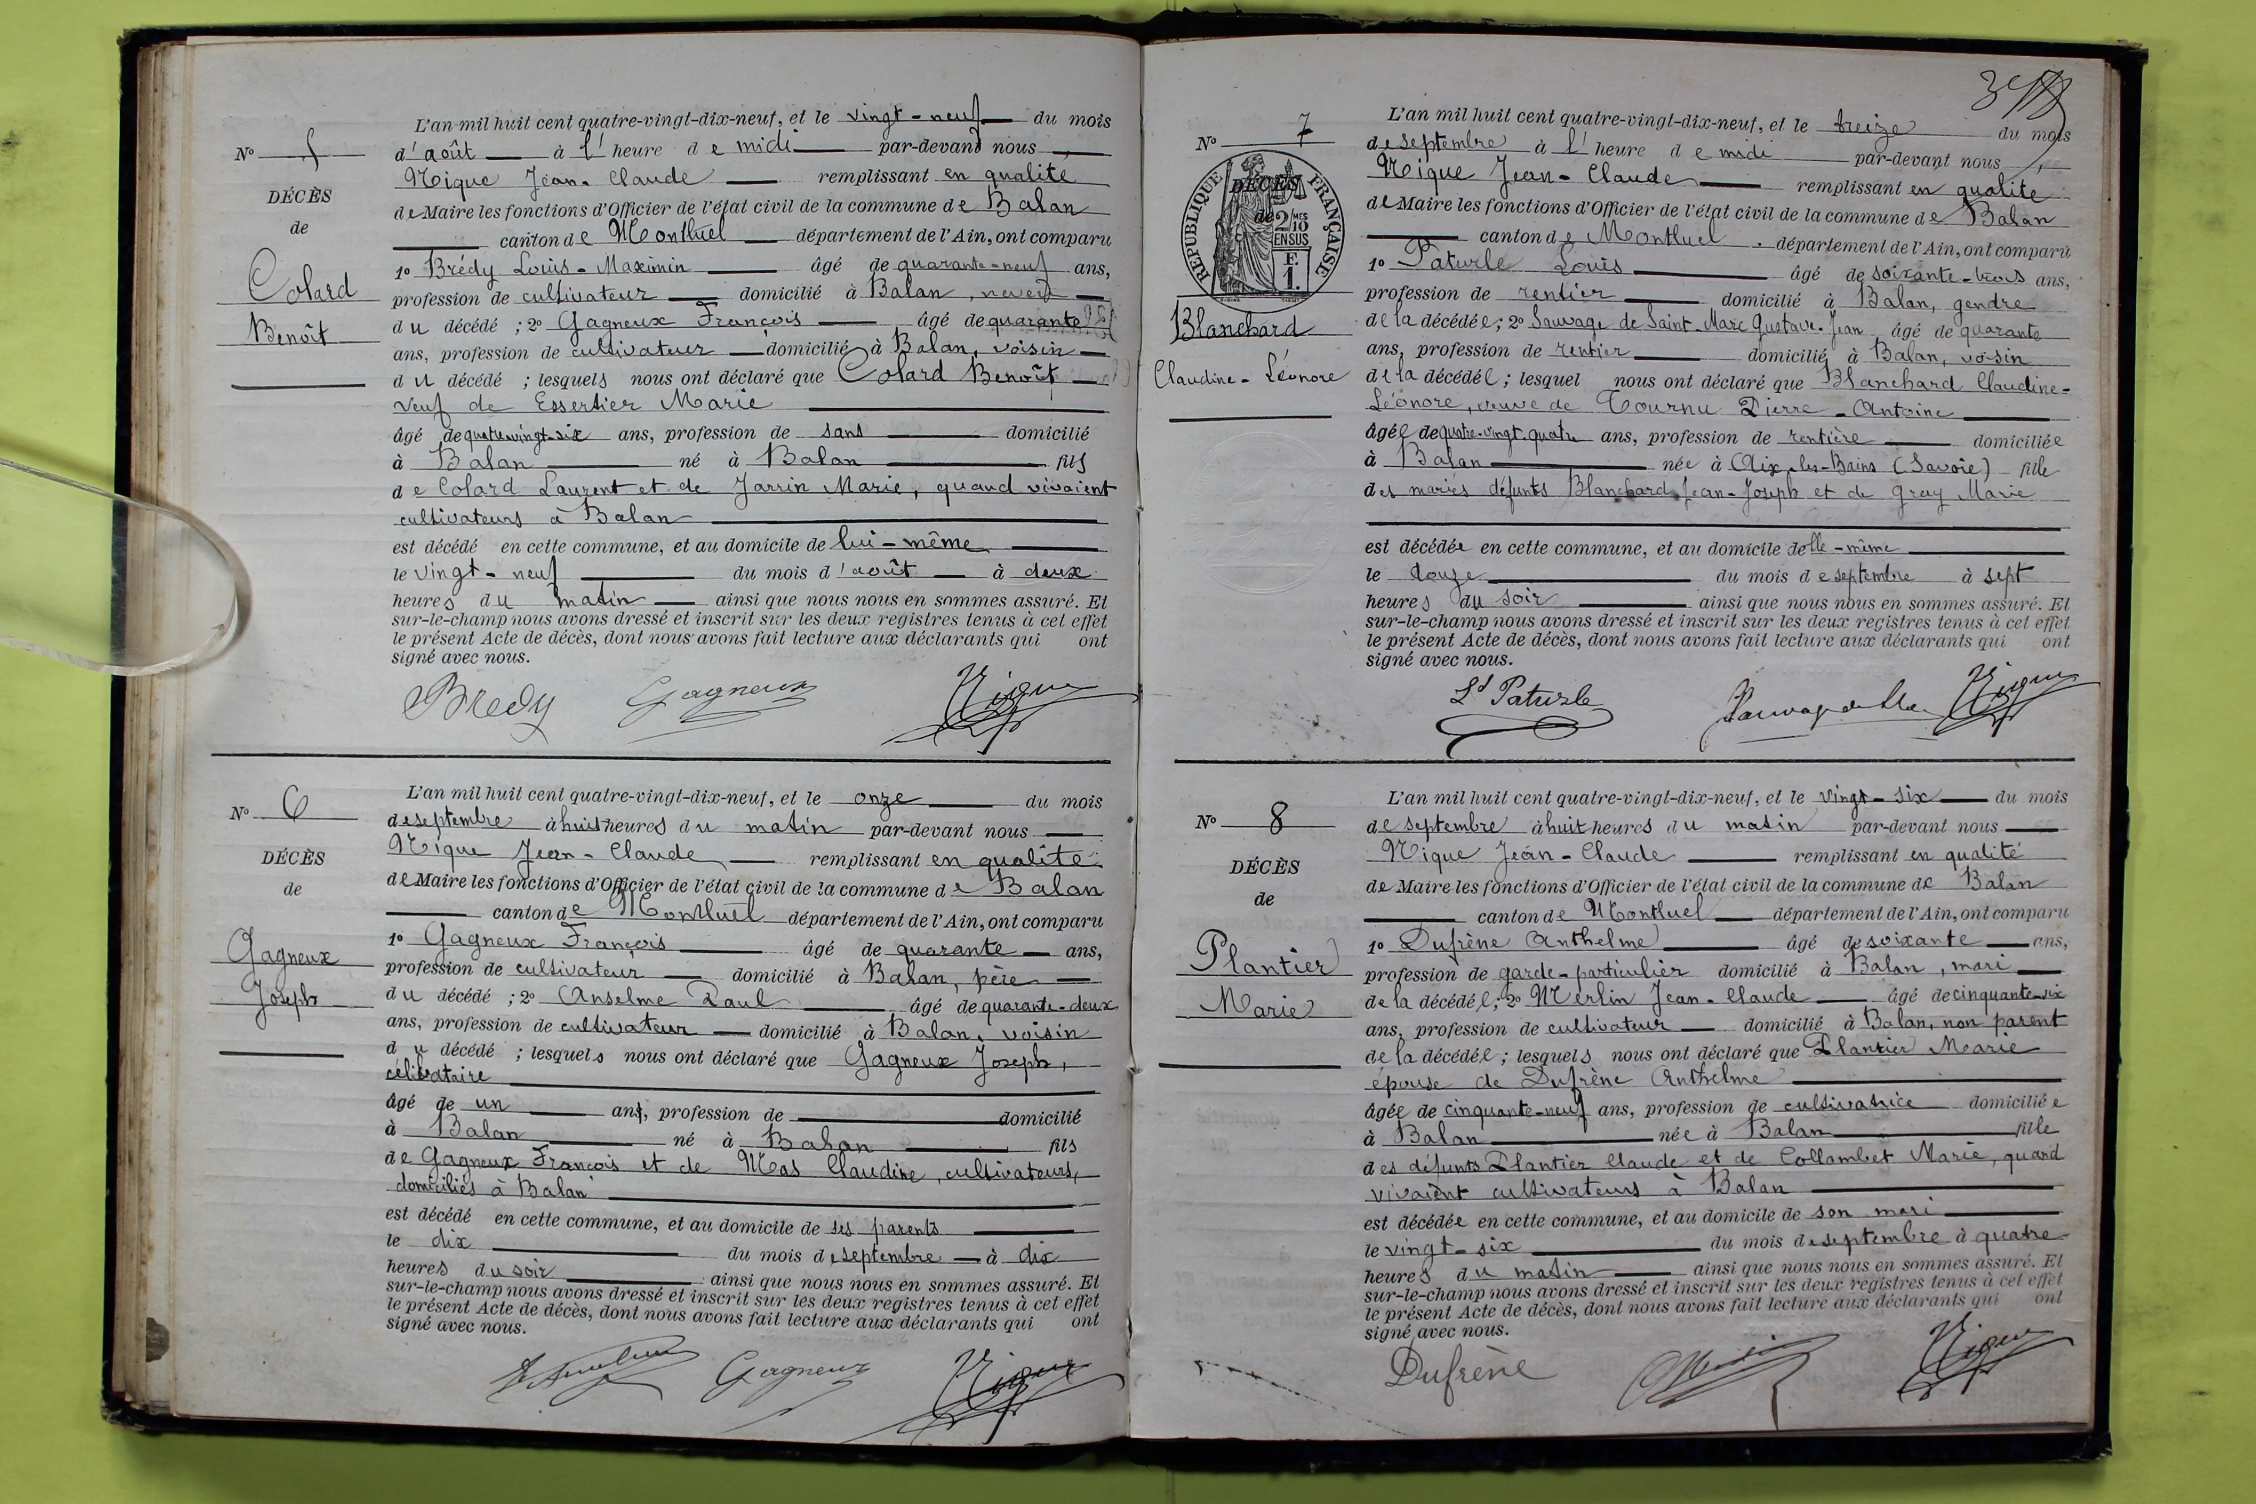 L'an mil huit cent quatre-vingt-dix-neuf, et le vingt-neuf du mois
N° 5
d'août à l'heure de midi par-devant nous
Nique Jean-Claude remplissant en qualité
DÉCÈS
de Maire les fonctions d'Officier de l'état civil de la commune de Balan
de
canton de Montluel département de l'Ain, ont comparu
1° Brédy Louis-Maximin âgé de quarante-neuf ans,
Colard
profession de cultivateur domicilié à Balan, neveu
du décédé ; 2° Gagneux François âgé de quarante
Benoît
ans, profession de cultivateur domicilié à Balan, voisin
du décédé ; lesquels nous ont déclaré que Colard Benoît
veuf de Essertier Marie
âgé de quatre-vingt-six ans, profession de sans domicilié
à Balan né à Balan fils
de Colard Laurent et de Jarrin Marie, quand vivaient
cultivateurs à Balan
est décédé en cette commune, et au domicile de lui-même
le vingt-neuf du mois d'août à deux
heures du matin ainsi que nous nous en sommes assuré. Et
sur-le-champ nous avons dressé et inscrit sur les deux registres tenus à cet effet
le présent Acte de décès, dont nous avons fait lecture aux déclarants qui ont
signé avec nous.
Bredy Gagneux Nique
L'an mil huit cent quatre-vingt-dix-neuf, et le onze du mois
N° 6
de septembre à huit heures du matin par-devant nous
Nique Jean-Claude remplissant en qualité
DÉCÈS
de Maire les fonctions d'Officier de l'état civil de la commune de Balan
de
canton de Montluel département de l'Ain, ont comparu
1° Gagneux François âgé de quarante ans,
Gagneux
profession de cultivateur domicilié à Balan, père
Joseph
du décédé ; 2° Anselme Paul âgé de quarante-deux
ans, profession de cultivateur domicilié à Balan, voisin
du décédé ; lesquels nous ont déclaré que Gagneux Joseph,
célibataire
âgé de un ans, profession de domicilié
à Balan né à Balan fils
de Gagneux François et de Mas Claudine, cultivateurs,
domiciliés à Balan
est décédé en cette commune, et au domicile de ses parents
le dix du mois de septembre à dix
heures du soir ainsi que nous nous en sommes assuré. Et
sur-le-champ nous avons dressé et inscrit sur les deux registres tenus à cet effet
le présent Acte de décès, dont nous avons fait lecture aux déclarants qui ont
signé avec nous.
Gagneux Nique
L'an mil huit cent quatre-vingt-dix-neuf, et le treize du mois
N° 7
de septembre à l'heure de midi par-devant nous
RÉPUBLIQUE FRANÇAISE
DÉCÈS
de
2/10MES
EN SUS
F.
1.
Nique Jean-Claude remplissant en qualité
de Maire les fonctions d'Officier de l'état civil de la commune de Balan
canton de Montluel département de l'Ain, ont comparu
1° Paturle Louis âgé de soixante-trois ans,
profession de rentier domicilié à Balan, gendre
Blanchard
de la décédée ; 2° Sauvage de Saint-Marc Gustave-Jean âgé de quarante
ans, profession de rentier domicilié à Balan, voisin
Claudine-Léonore
de la décédée ; lesquel nous ont déclaré que Blanchard Claudine-
Léonore, veuve de Tournu Pierre-Antoine
âgée de quatre-vingt-quatre ans, profession de rentière domiciliée
à Balan née à Aix-les-Bains (Savoie) fille
des mariés défunts Blanchard Jean-Joseph et de Gray Marie
est décédée en cette commune, et au domicile d'elle-même
le douze du mois de septembre à sept
heures du soir ainsi que nous nous en sommes assuré. Et
sur-le-champ nous avons dressé et inscrit sur les deux registres tenus à cet effet
le présent Acte de décès, dont nous avons fait lecture aux déclarants qui ont
signé avec nous.
Ls Paturle Nique
L'an mil huit cent quatre-vingt-dix-neuf, et le vingt-six du mois
N° 8
de septembre à huit heures du matin par-devant nous
Nique Jean-Claude remplissant en qualité
DÉCÈS
de Maire les fonctions d'Officier de l'état civil de la commune de Balan
de
canton de Montluel département de l'Ain, ont comparu
1° Dufrène Anthelme âgé de soixante ans,
Plantier
profession de garde-particulier domicilié à Balan, mari
Marie
de la décédée ; 2° Merlin Jean-Claude âgé de cinquante-six
ans, profession de cultivateur domicilié à Balan, non parent
de la décédée ; lesquels nous ont déclaré que Plantier Marie
épouse de Dufrène Anthelme
âgée de cinquante-neuf ans, profession de cultivatrice domiciliée
à Balan née à Balan fille
des défunts Plantier Claude et de Collambet Marie, quand
vivaient cultivateurs à Balan
est décédée en cette commune, et au domicile de son mari
le vingt-six du mois de septembre à quatre
heures du matin ainsi que nous nous en sommes assuré. Et
sur-le-champ nous avons dressé et inscrit sur les deux registres tenus à cet effet
le présent Acte de décès, dont nous avons fait lecture aux déclarants qui ont
signé avec nous.
Dufrène Nique